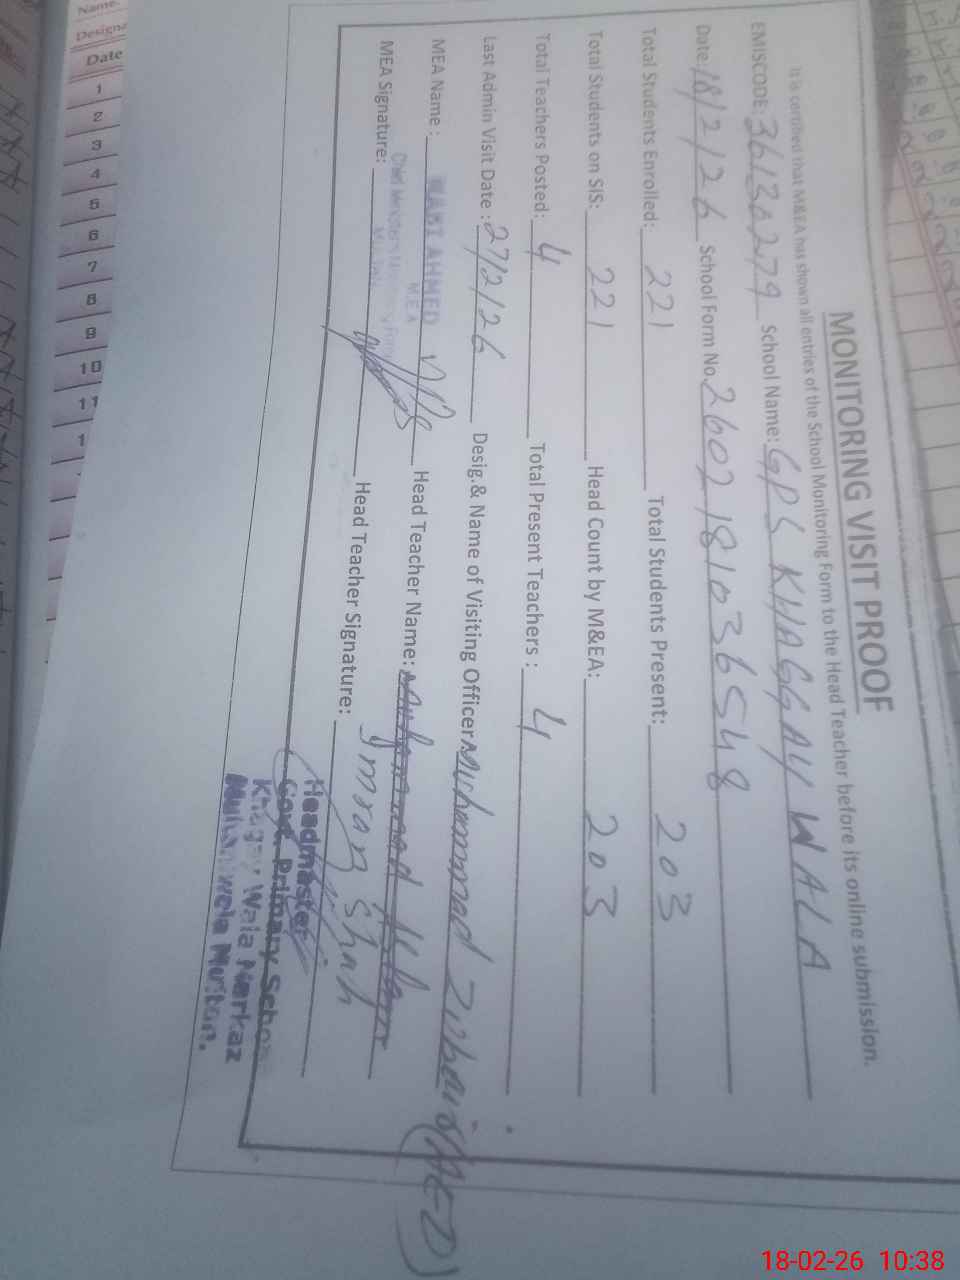 MONITORING VISIT PROOF
It is certified that M&EA has shown all entries of the School Monitoring Form to the Head Teacher before its online submission.
EMISCODE: 36130279 School Name: GPS KHAGGAY WALA
Date: 18/2/26 School Form No. 2602181036548
Total Students Enrolled: 221 Total Students Present: 203
Total Students on SIS: 221 Head Count by M&EA: 203
Total Teachers Posted: 4 Total Present Teachers : 4
Last Admin Visit Date : 27/2/26 Desig.& Name of Visiting Officer Muhammad Zubair (AEO)
MEA Name : NABI AHMED Head Teacher Name: Muhammad Aslam
MEA
MEA Signature: Head Teacher Signature: Imran Shah
Headmaster
Govt. Primary School
Khaggay Wala Markaz
Multan.
Name.
Date
1
2
3
4
5
6
7
8
9
10
11
1
18-02-26 10:38